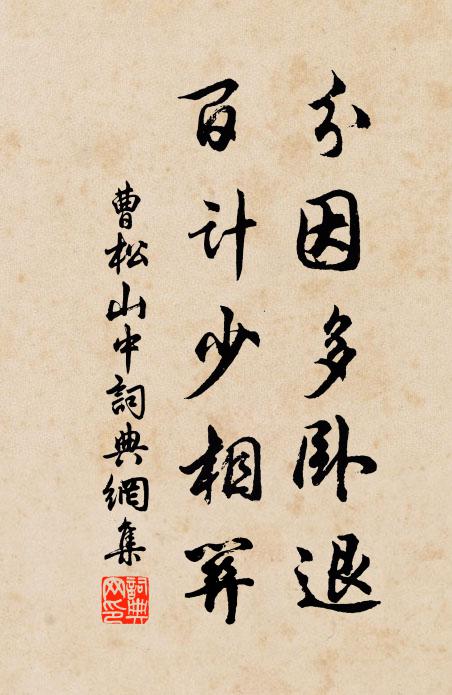 分因多卧退
百计少相關
曹松山中詞典網集
詞典
网印